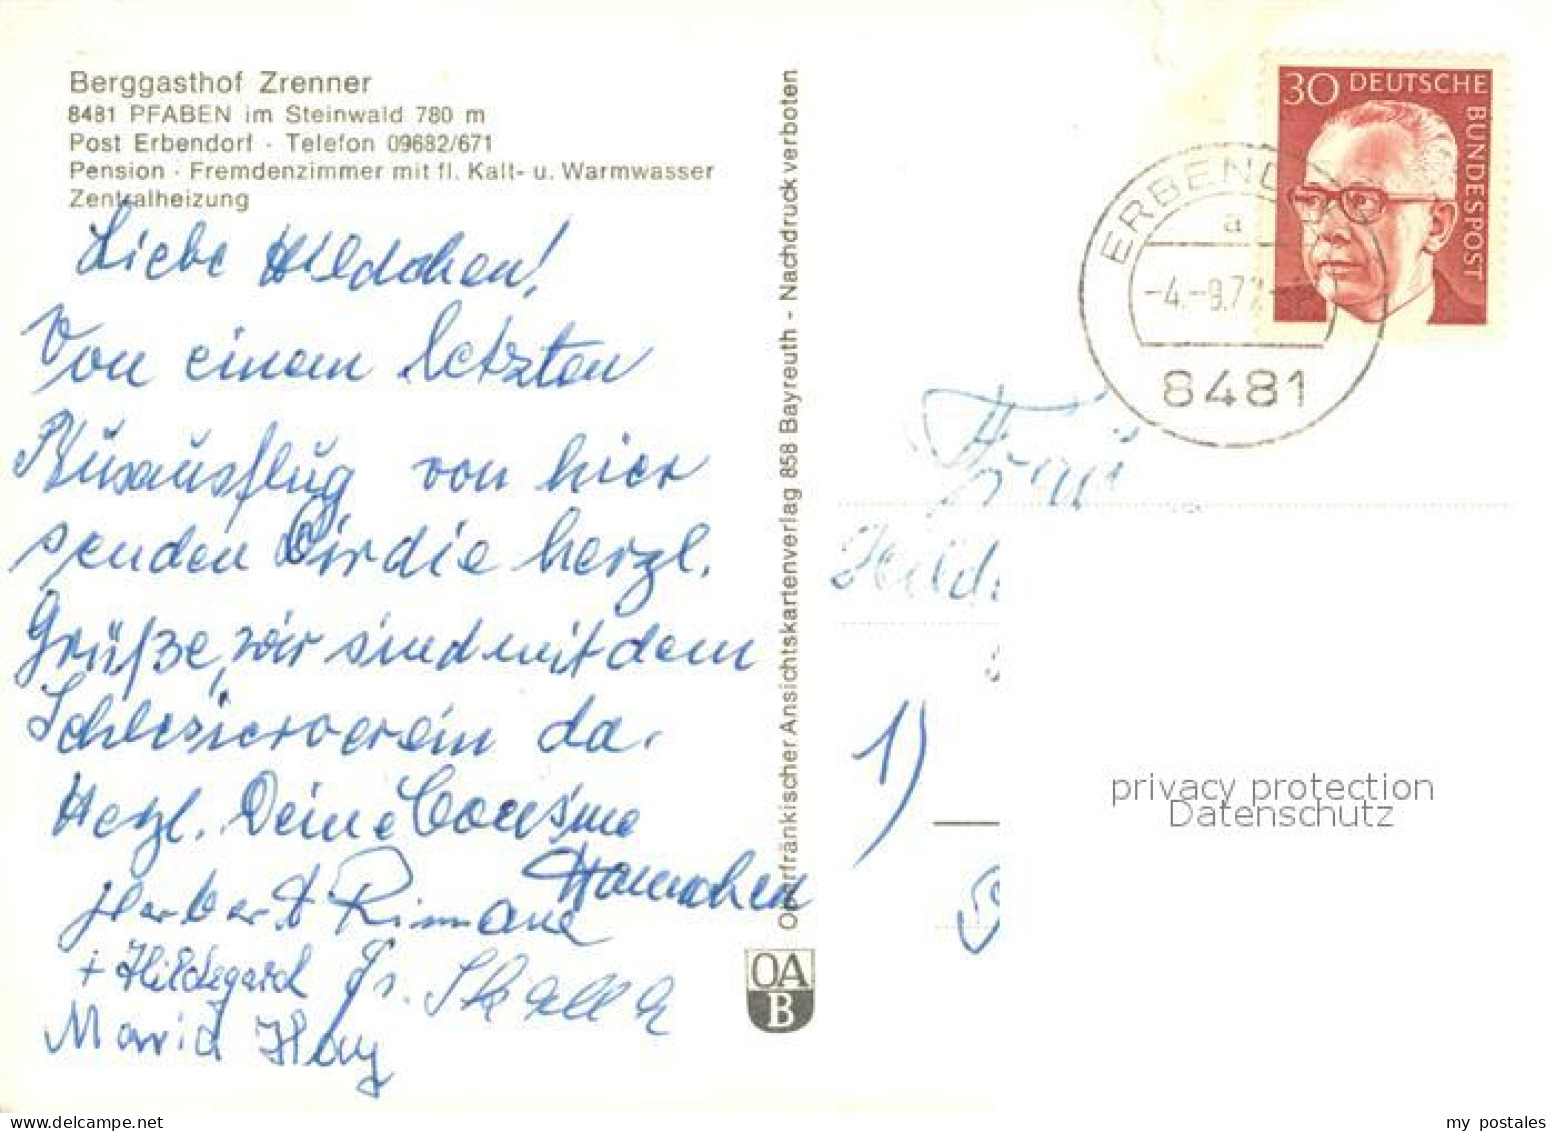 Berggasthof Zrenner
8481 PFABEN im Steinwald 780 m
Post Erbendorf · Telefon 09682/671
Pension · Fremdenzimmer mit fl. Kalt- u. Warmwasser
Zentralheizung
Liebe Hildchen!
Von einem letzten
Busausflug von hier
senden Dir die herzl.
Grüße, wir sind mit dem
Schlesierverein da.
Herzl. Deine Cousine
Hannchen
Herbert Rimane
+ Hildegard Fr.
Maria Hay
Oberfränkischer Ansichtskartenverlag 858 Bayreuth - Nachdruck verboten
OA
B
30 DEUTSCHE
BUNDESPOST
ERBENDO
a
-4.-9.72-
8481
Frau
Hild
1)
privacy protection
Datenschutz
my postales